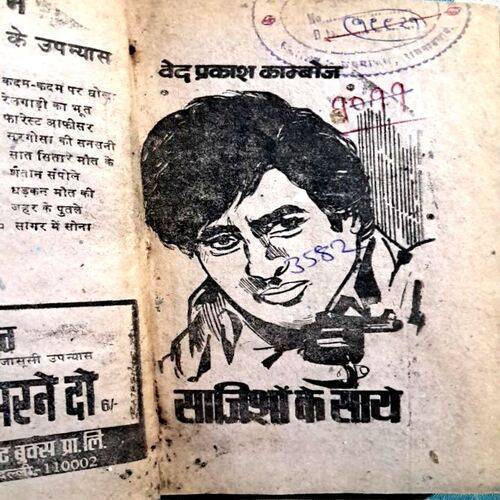 के उपन्यास
कदम-कदम पर धोखा
रेलगाड़ी का भूत
फारेस्ट आफीसर
सुरगोसा की सनसनी
सात सितारे मौत के
शैतान सपोले
धड़कन मौत की
जहर के पुतले
सागर में सोना
जासूसी उपन्यास
मरने दो 6/-
बुक्स प्रा.लि.
दिल्ली-110002
वेद प्रकाश काम्बोज
१०११
3582
साजिशों के साये